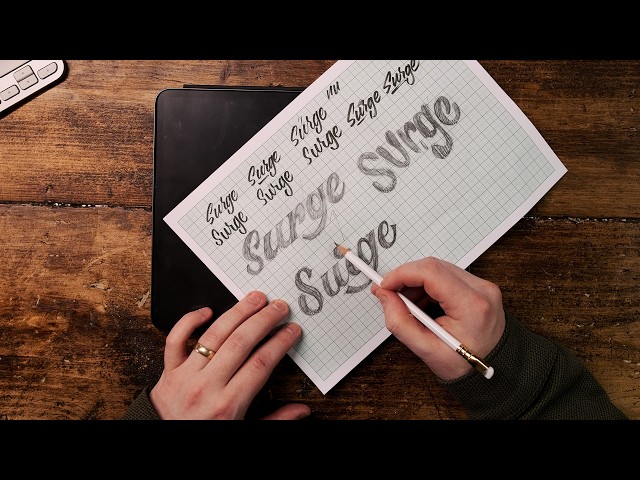 Surge Surge Surge nu
Surge Surge Surge Surge Surge
Surge SUrge
Surge